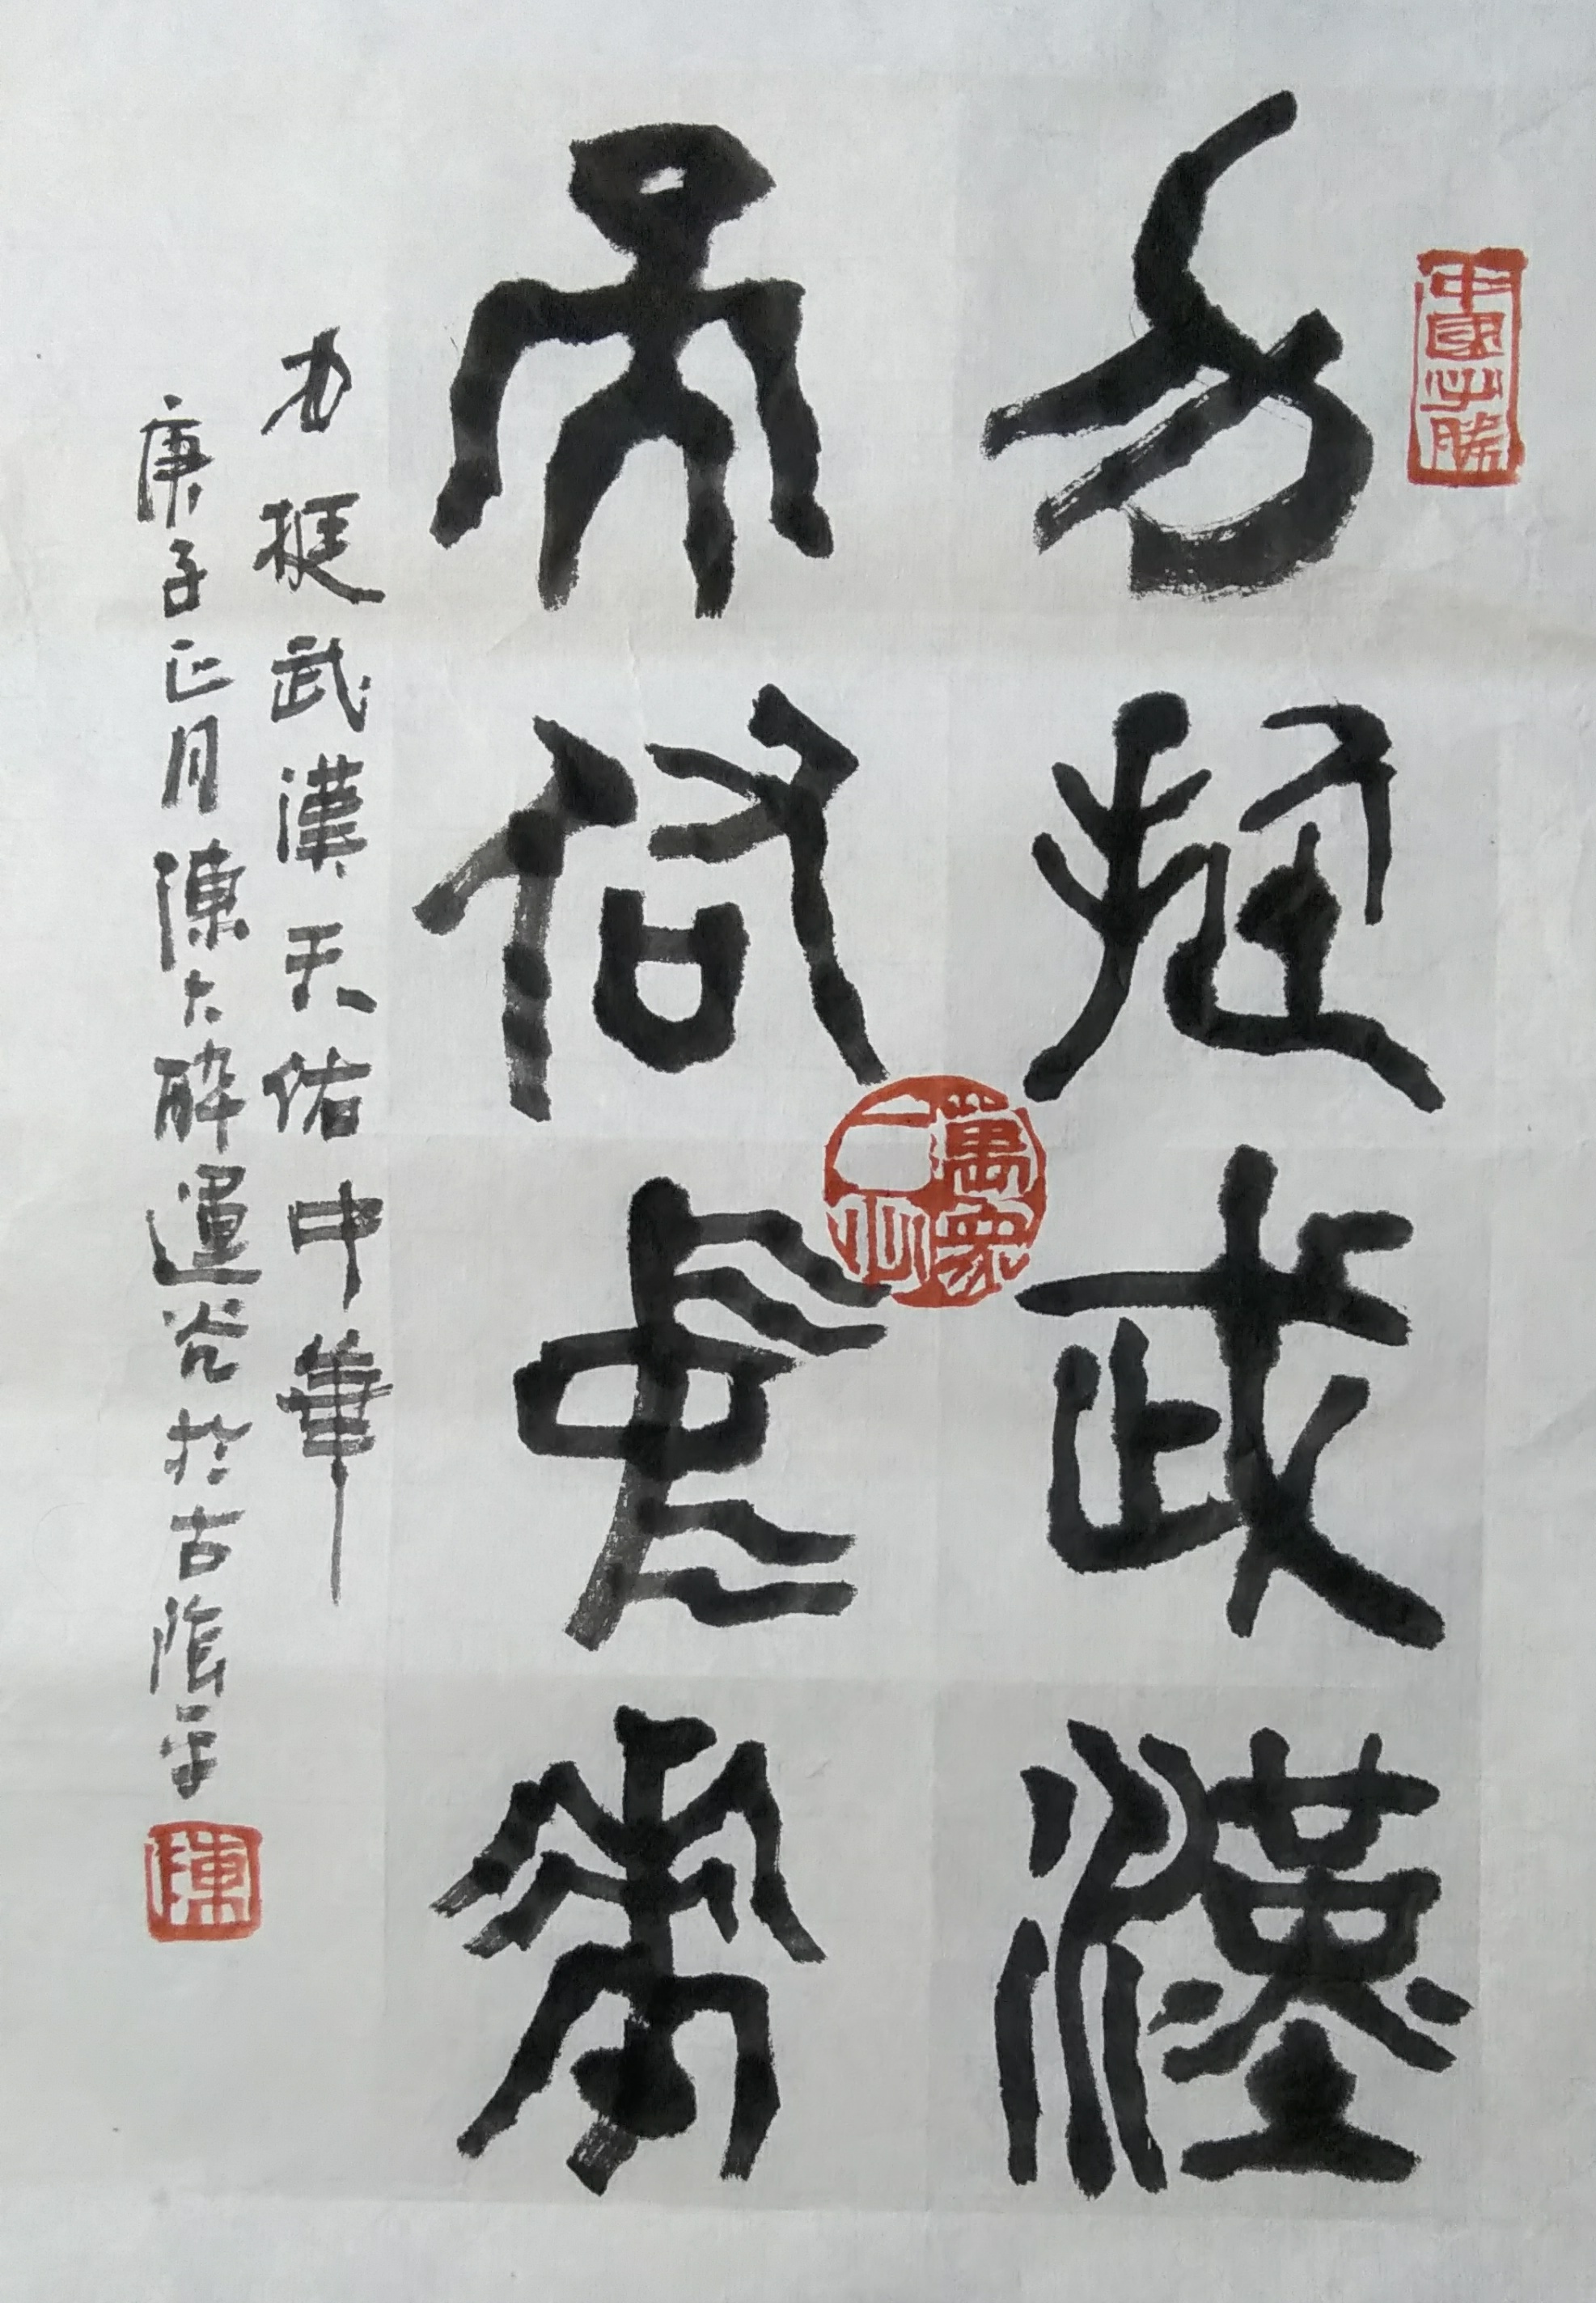 中國必勝
力挺武漢
萬眾一心
天佑中華
力挺武漢天佑中華
庚子正月陳大醉運災於古陰平
陳